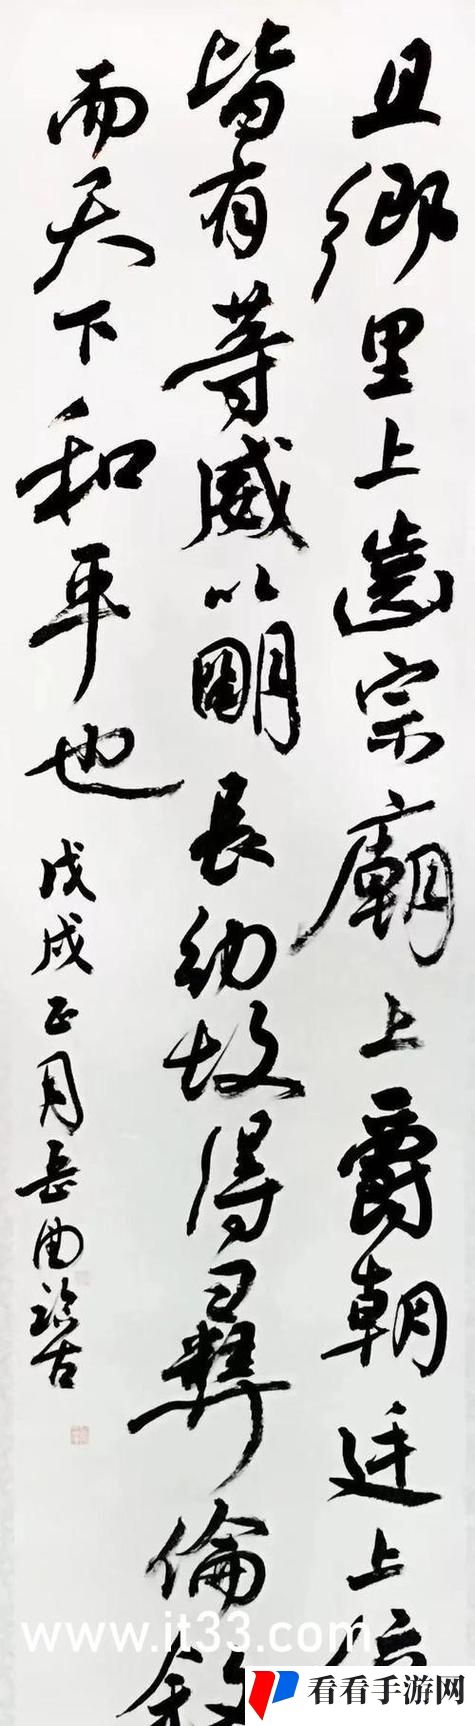 且鄉里上齒宗廟上爵朝廷上位
皆有等威以明長幼故得彝倫敘
而天下和平也
戊戌正月岳曲臨古
www.it33.com
看看手游网